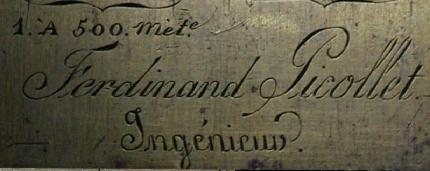 1. A 500. mète
Ferdinand Picollet.
Ingénieur.